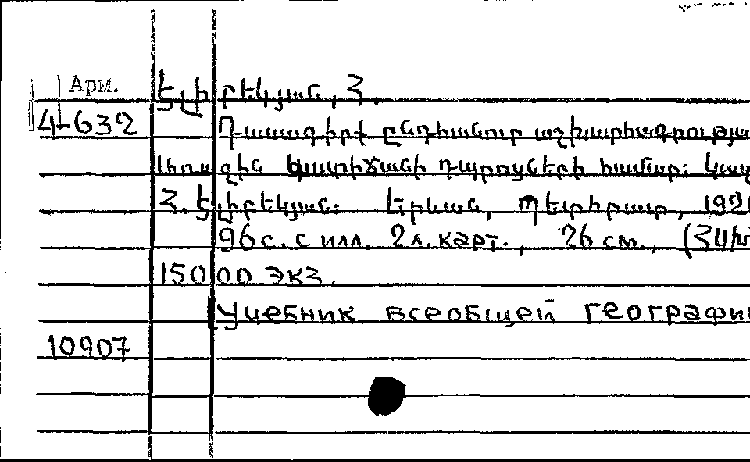 Арм.
Էլիբեկյան, Հ.
4-632
Դասագիրք ընդհանուր աշխարհագրությա
առաջին աստիճանի դպրոցների համար: Կազ
Հ. Էլիբեկյան: Երևան, Պետհրատ, 192
96 с. с илл. 2 л. карт., 26 см.,
15000 экз.
Учебник всеобщей географи
10907